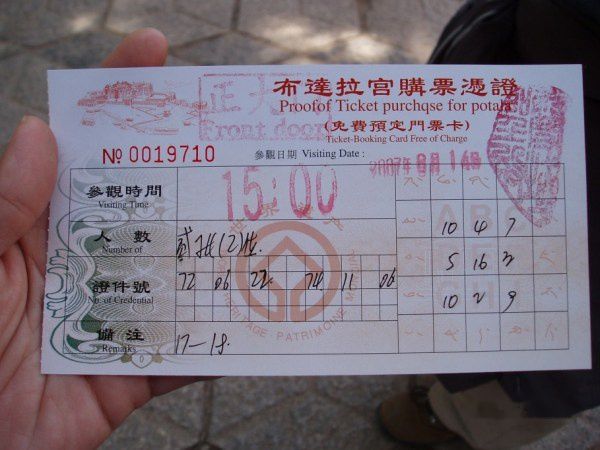 布達拉宮購票憑證
Proof of Ticket purchqse for potala
(免費預定門票卡)
Ticket-Booking Card Free of Charge
正大
Front door
№ 0019710
參觀日期 Visiting Date:
2007年 8月 14日
參觀時間
Visiting Time
15:00
人數
Number of
10 4 7
5 16 3
證件號
No. of Credential
72 06 22 74 11 06
10 2 9
HERITAGE · PATRIMOINE MONDIAL
備注
Remarks
17—18.